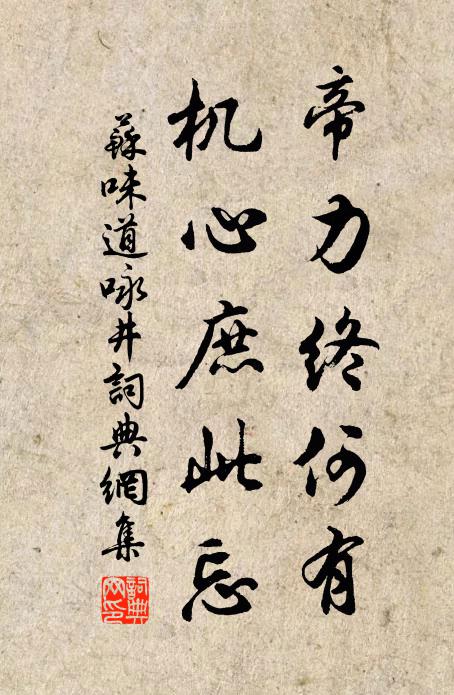 帝力终何有
机心庶此忘
蘇味道咏井詞典網集
詞典网印